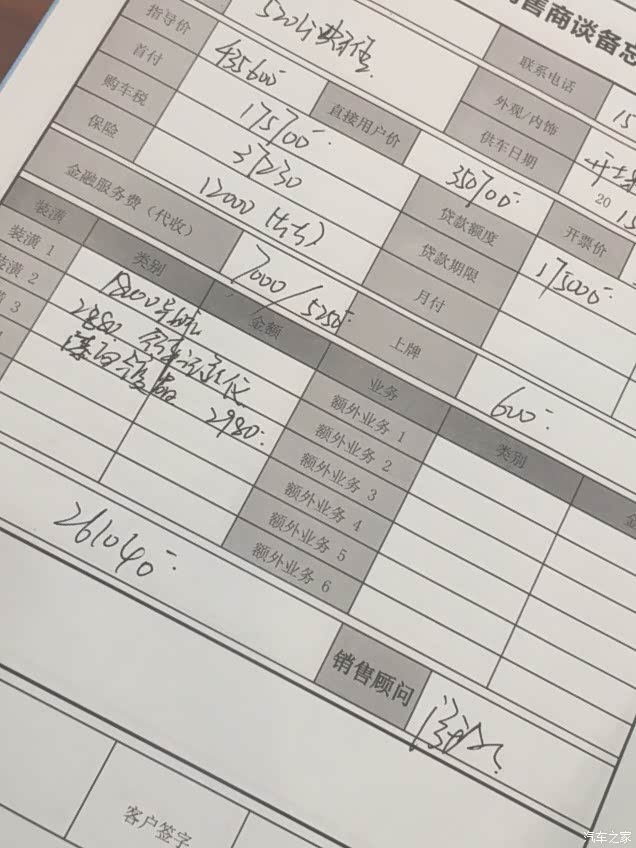 售商谈备忘
520Li
联系电话 15
指导价 435600 外观/内饰
首付 175700 直接用户价 350700 供车日期 20 15
购车税 37230 贷款额度 175000 开票价
保险 12000 贷款期限
金融服务费（代收） 7000/5250 月付
装潢 类别 金额 上牌 600
装潢 1 1800 业务 类别
装潢 2 2880 行车记录仪 额外业务 1
3 2980 额外业务 2
额外业务 3
额外业务 4
额外业务 5
261040 额外业务 6
销售顾问
客户签字
汽车之家